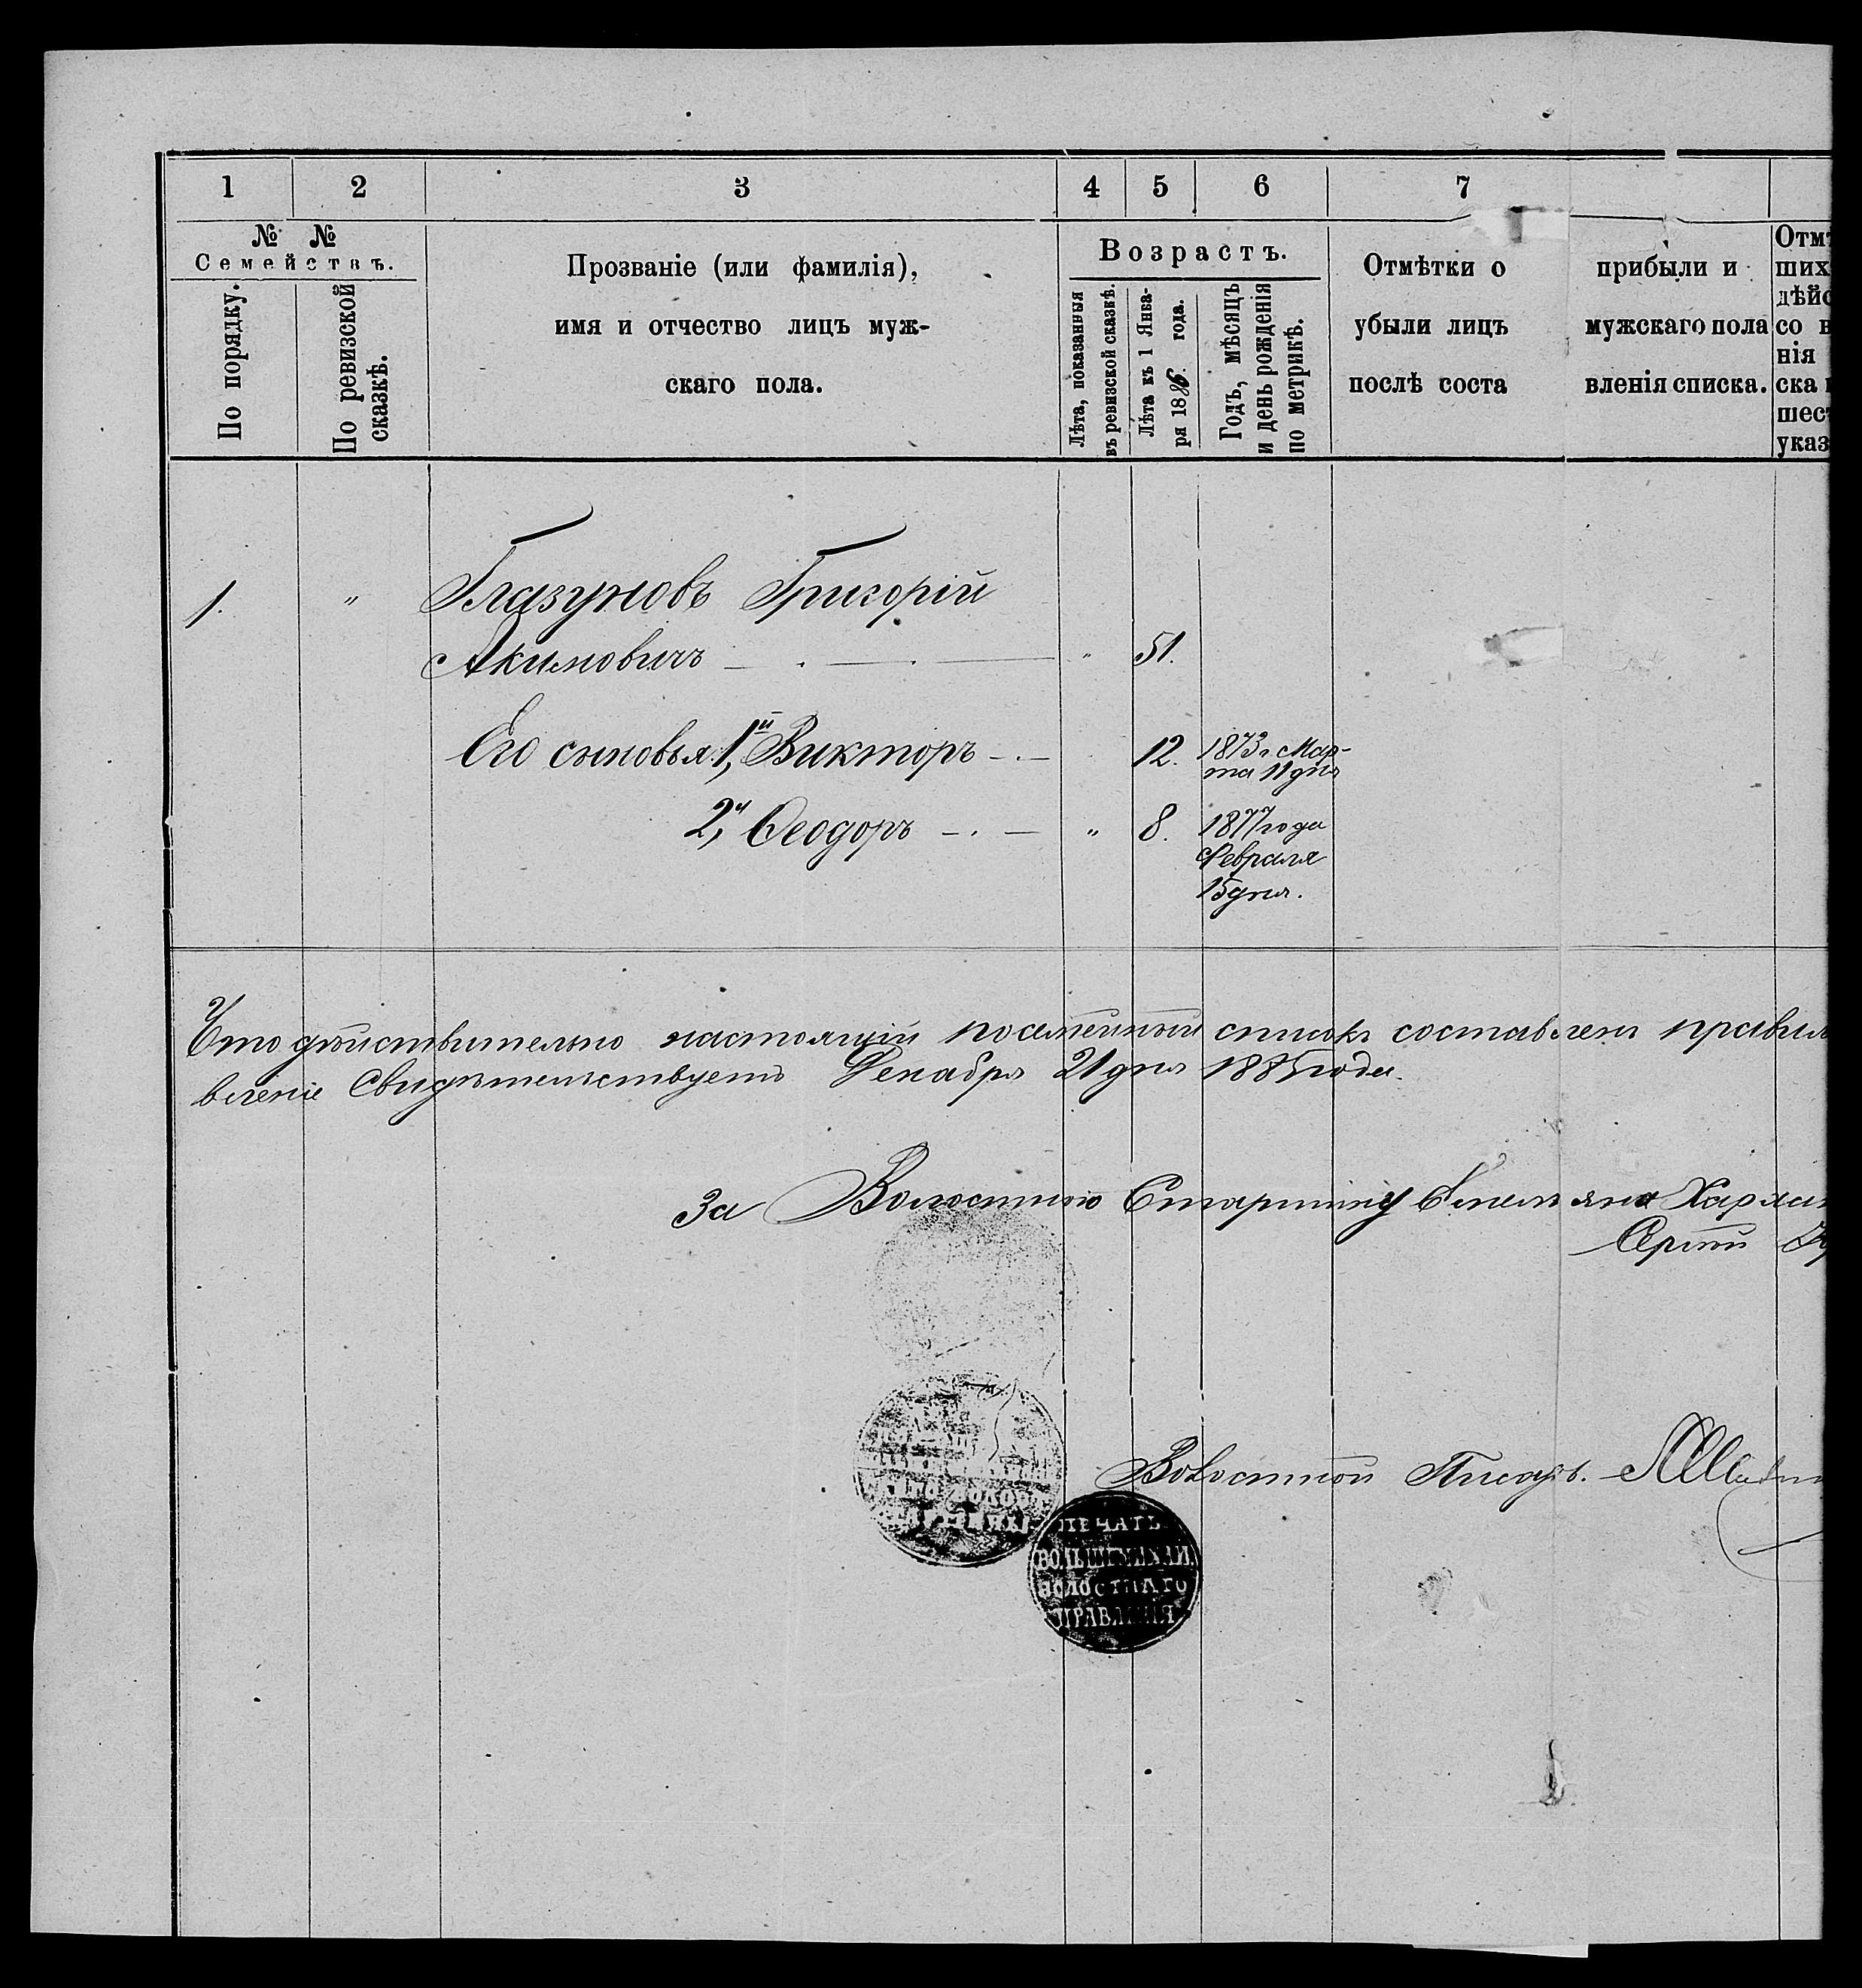 1 2 3 4 5 6 7
№ №
Семействъ.
По порядку.
По ревизской
сказкѣ.
Прозваніе (или фамилія),
имя и отчество лицъ муж-
скаго пола.
Возрастъ.
Лѣта, показанныя
въ ревизской сказкѣ.
Лѣта къ 1 Янва-
ря 1886. года.
Годъ, мѣсяцъ
и день рожденія
по метрикѣ.
Отмѣтки о прибыли и
убыли лицъ мужскаго пола
послѣ соста вленія списка.
Отмѣ
ших
дѣйс
со в
нія
ска
шест
указ
1. " Глазуновъ Григорій
Акимовичъ " 51.
Его сыновья: 1й, Викторъ 12. 1873 г. Мар-
та 11 дня
2й, Ѳеодоръ " 8. 1877 года
Февраля
15 дня.
Что дѣйствительно настоящій посемейный списокъ составленъ правил
вленіе свидѣтельствуетъ Декабря 21 дня 1885 года.
За Волостною Старшину Емельяна Харлам
Сергѣй
Волостной Писарь.
ПЕЧАТЬ
ВОЛОСТНАГО
ПРАВЛЕНІЯ